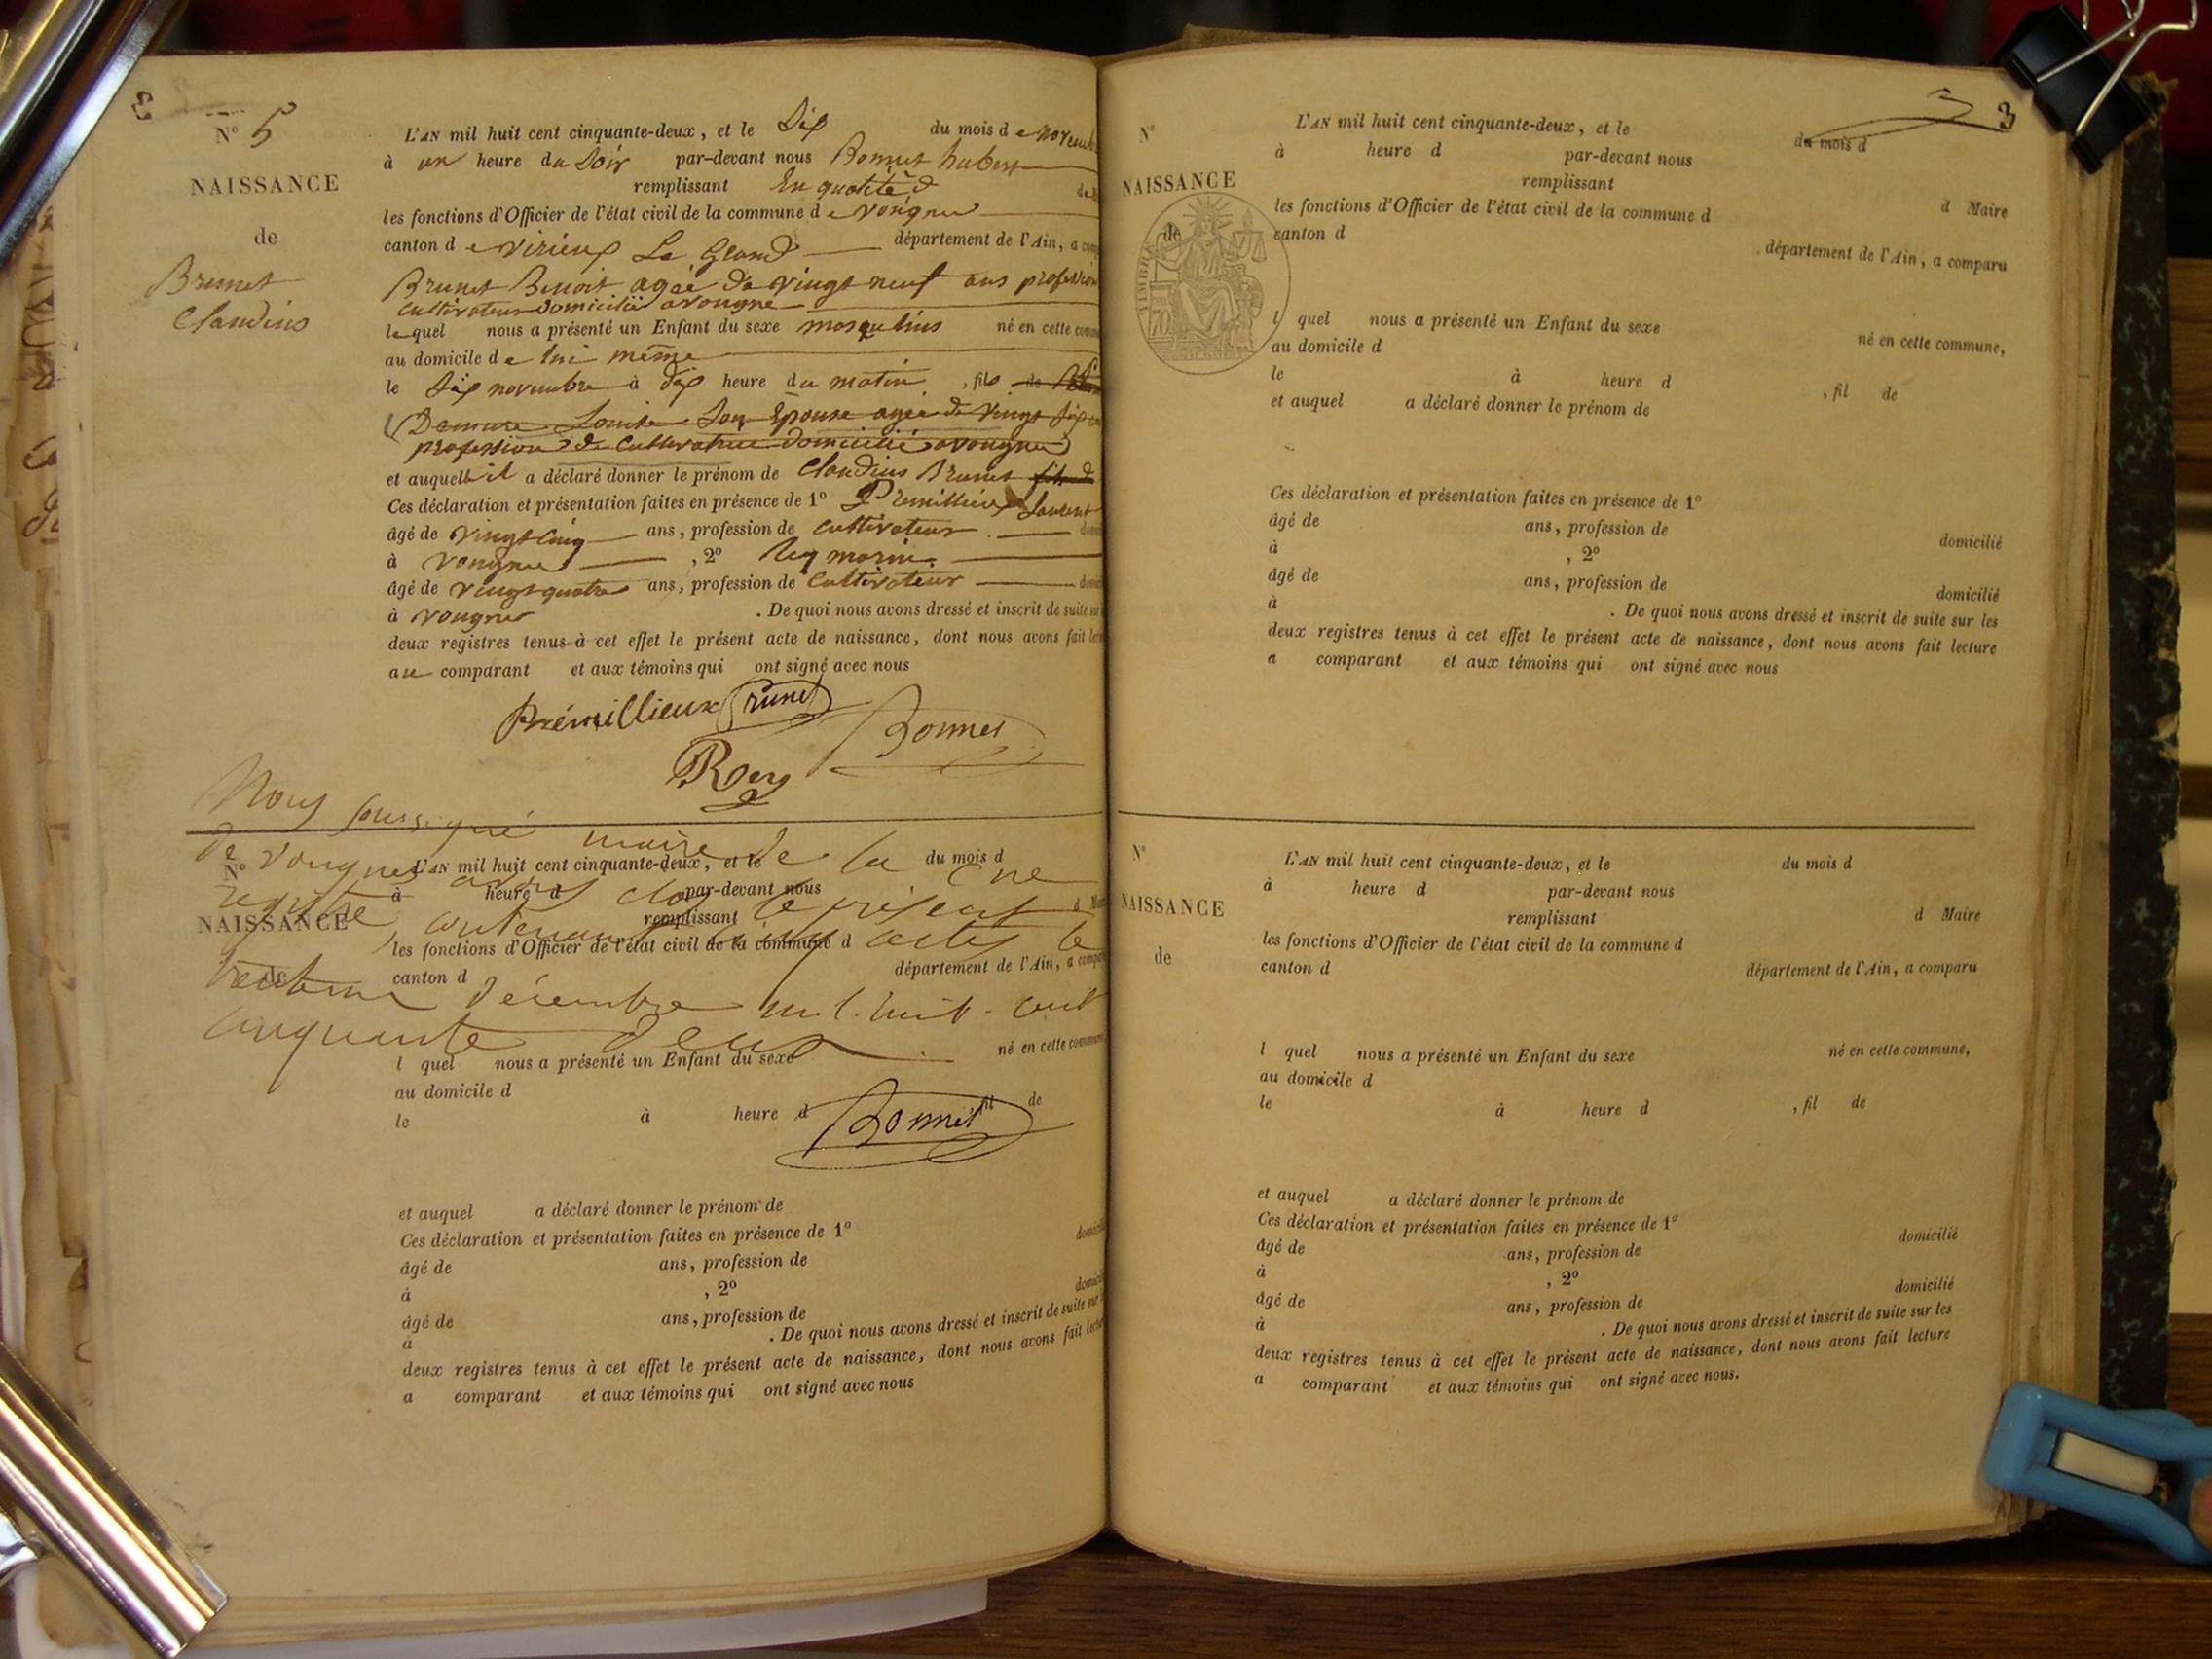 3
N° 5
NAISSANCE
de
Brunet
Claudius
L'AN mil huit cent cinquante-deux, et le Dix du mois de novemb
à un heure du Soir par-devant nous Bonnet hubert
remplissant En qualité d de M
les fonctions d'Officier de l'état civil de la commune de vongne
canton de virieux Le Grand département de l'Ain, a com
Brunet Benoit agée de vingt neuf ans profession
cultivateur domicilié a vongne
lequel nous a présenté un Enfant du sexe masqulins né en cette comm
au domicile de lui même
le Dix novembre à dix heure du matin , fils de
Louise Son Épouse agée de vingt six
profession de Cultivatrice domicilié a vongne
et auquel il a déclaré donner le prénom de Claudius Brunet fils d
Ces déclaration et présentation faites en présence de 1° Premillieux Laurent
âgé de vingt cinq ans, profession de cultivateur domi
à vongne , 2° Rey marin
âgé de vingt quatre ans, profession de Cultivateur domici
à vongne . De quoi nous avons dressé et inscrit de suite su
deux registres tenus à cet effet le présent acte de naissance, dont nous avons fait lect
au comparant et aux témoins qui ont signé avec nous
Prémillieux Brunet
Bonnet
Rey
Nous soussigné maire de la Cne
de Vongnes avons clos le présent
registre contenant cinq actes le
trente un décembre mil huit cent
cinquante deux
Bonnet
N°
NAISSANCE
de
L'AN mil huit cent cinquante-deux, et le du mois d
à heure d par-devant nous
remplissant d Mai
les fonctions d'Officier de l'état civil de la commune d
canton d département de l'Ain, a compa
l quel nous a présenté un Enfant du sexe né en cette commun
au domicile d
le à heure d fil de
et auquel a déclaré donner le prénom de
Ces déclaration et présentation faites en présence de 1°
âgé de ans, profession de domicili
à , 2°
âgé de ans, profession de domicili
à . De quoi nous avons dressé et inscrit de suite sur
deux registres tenus à cet effet le présent acte de naissance, dont nous avons fait lectu
a comparant et aux témoins qui ont signé avec nous
3
3
N°
NAISSANCE
de
TIMBRE
L'AN mil huit cent cinquante-deux, et le du mois d
à heure d par-devant nous
remplissant d Maire
les fonctions d'Officier de l'état civil de la commune d
canton d département de l'Ain, a comparu
l quel nous a présenté un Enfant du sexe né en cette commune,
au domicile d
le à heure d , fil de
et auquel a déclaré donner le prénom de
Ces déclaration et présentation faites en présence de 1°
âgé de ans, profession de domicilié
à , 2°
âgé de ans, profession de domicilié
à . De quoi nous avons dressé et inscrit de suite sur les
deux registres tenus à cet effet le présent acte de naissance, dont nous avons fait lecture
a comparant et aux témoins qui ont signé avec nous
N°
NAISSANCE
de
L'AN mil huit cent cinquante-deux, et le du mois d
à heure d par-devant nous
remplissant d Maire
les fonctions d'Officier de l'état civil de la commune d
canton d département de l'Ain, a comparu
l quel nous a présenté un Enfant du sexe né en cette commune,
au domicile d
le à heure d , fil de
et auquel a déclaré donner le prénom de
Ces déclaration et présentation faites en présence de 1°
âgé de ans, profession de domicilié
à , 2°
âgé de ans, profession de domicilié
à . De quoi nous avons dressé et inscrit de suite sur les
deux registres tenus à cet effet le présent acte de naissance, dont nous avons fait lecture
a comparant et aux témoins qui ont signé avec nous.